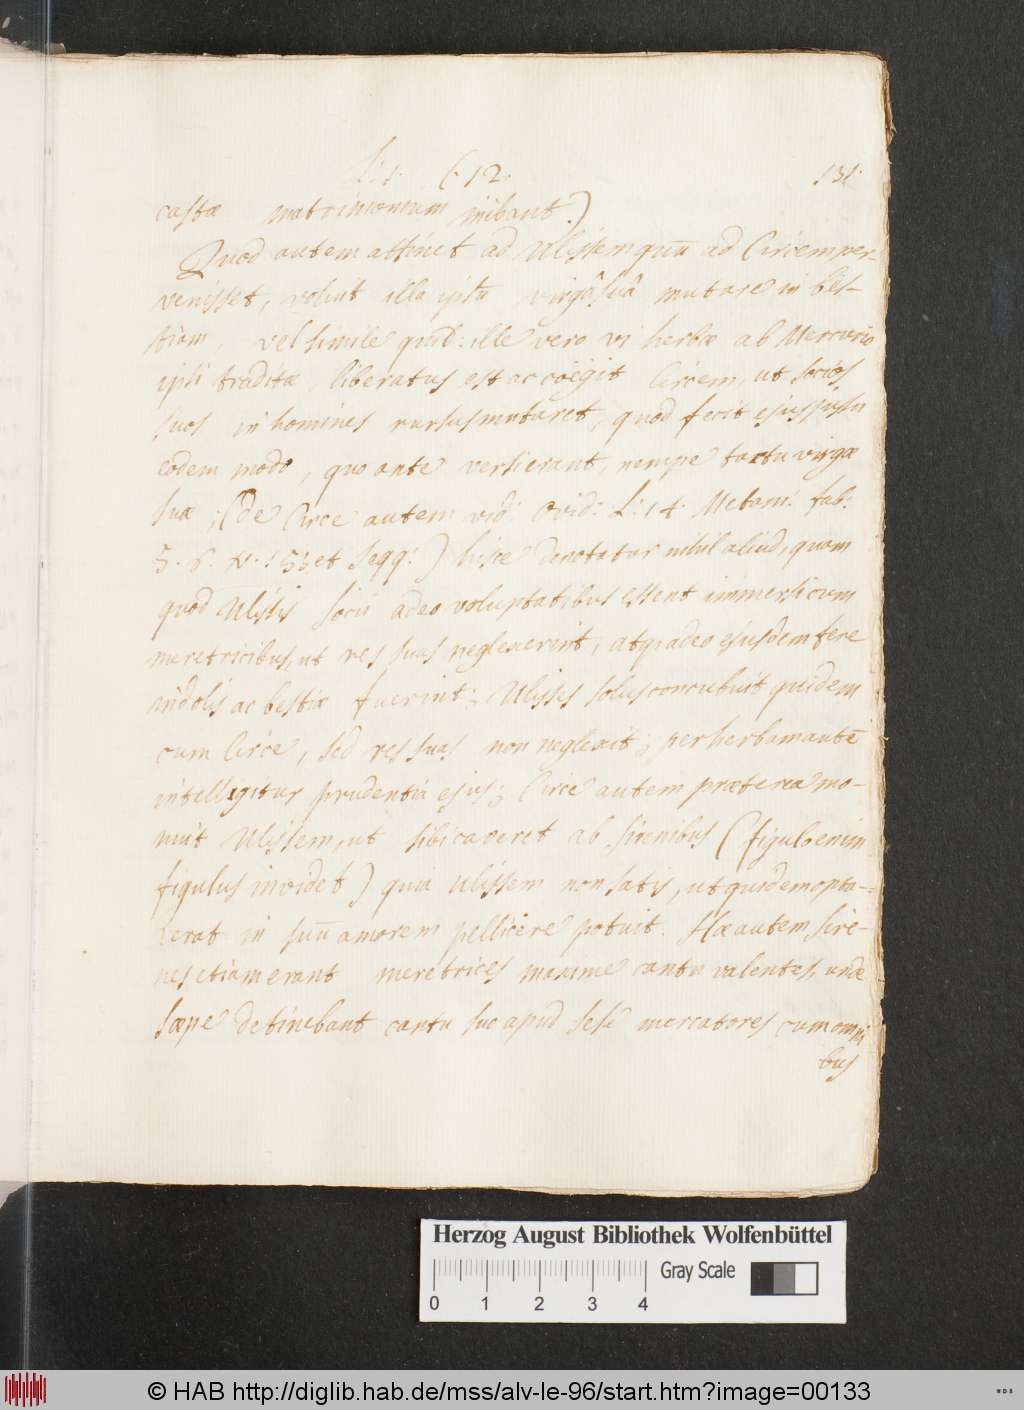 L: 1. C. 12. 131.
castæ matrimonium inibant.)
Quod autem attinet ad Ulissem, quū ad Circem per-
venisset, voluit illa ipsū virgâ suâ mutare in bes-
tiam, vel simile quid: ille vero vi herbæ ab Mercurio
ipsi traditæ, liberatus est ac coëgit Circem, ut socios
suos in homines rursus mutaret, quod fecit ejus jussu
eodem modo, quo ante versi erant, nempe tactu virgæ
suæ; (de Circe autem vid: Ovid: L: 14. Metam: fab:
5. 6. v. 153 et seqq:) hisce denotatur nihil aliud, quam
quod Ulissis socii adeo voluptatibus essent immersi cum
meretricibus, ut res suas neglexerint, atq; adeo ejusdem fere
indolis ac bestiæ fuerint; Ulisses solus concubuit quidem
cum Circe, sed res suas non neglexit; per herbam autē
intelligitur prudentia ejus; Circe autem præterea mo-
nuit Ulissem, ut sibi caveret ab sirenibus (figulo enim
figulus invidet) quia Ulissem non satis, ut quidem opta-
verat in suū amorem pellicere potuit. Hæ autem sire-
nes etiam erant meretrices maxime cantu valentes, unde
sæpe detinebant cantu suo apud sese mercatores cum omni
bus
Herzog August Bibliothek Wolfenbüttel
Gray Scale
0 1 2 3 4
© HAB http://diglib.hab.de/mss/alv-le-96/start.htm?image=00133